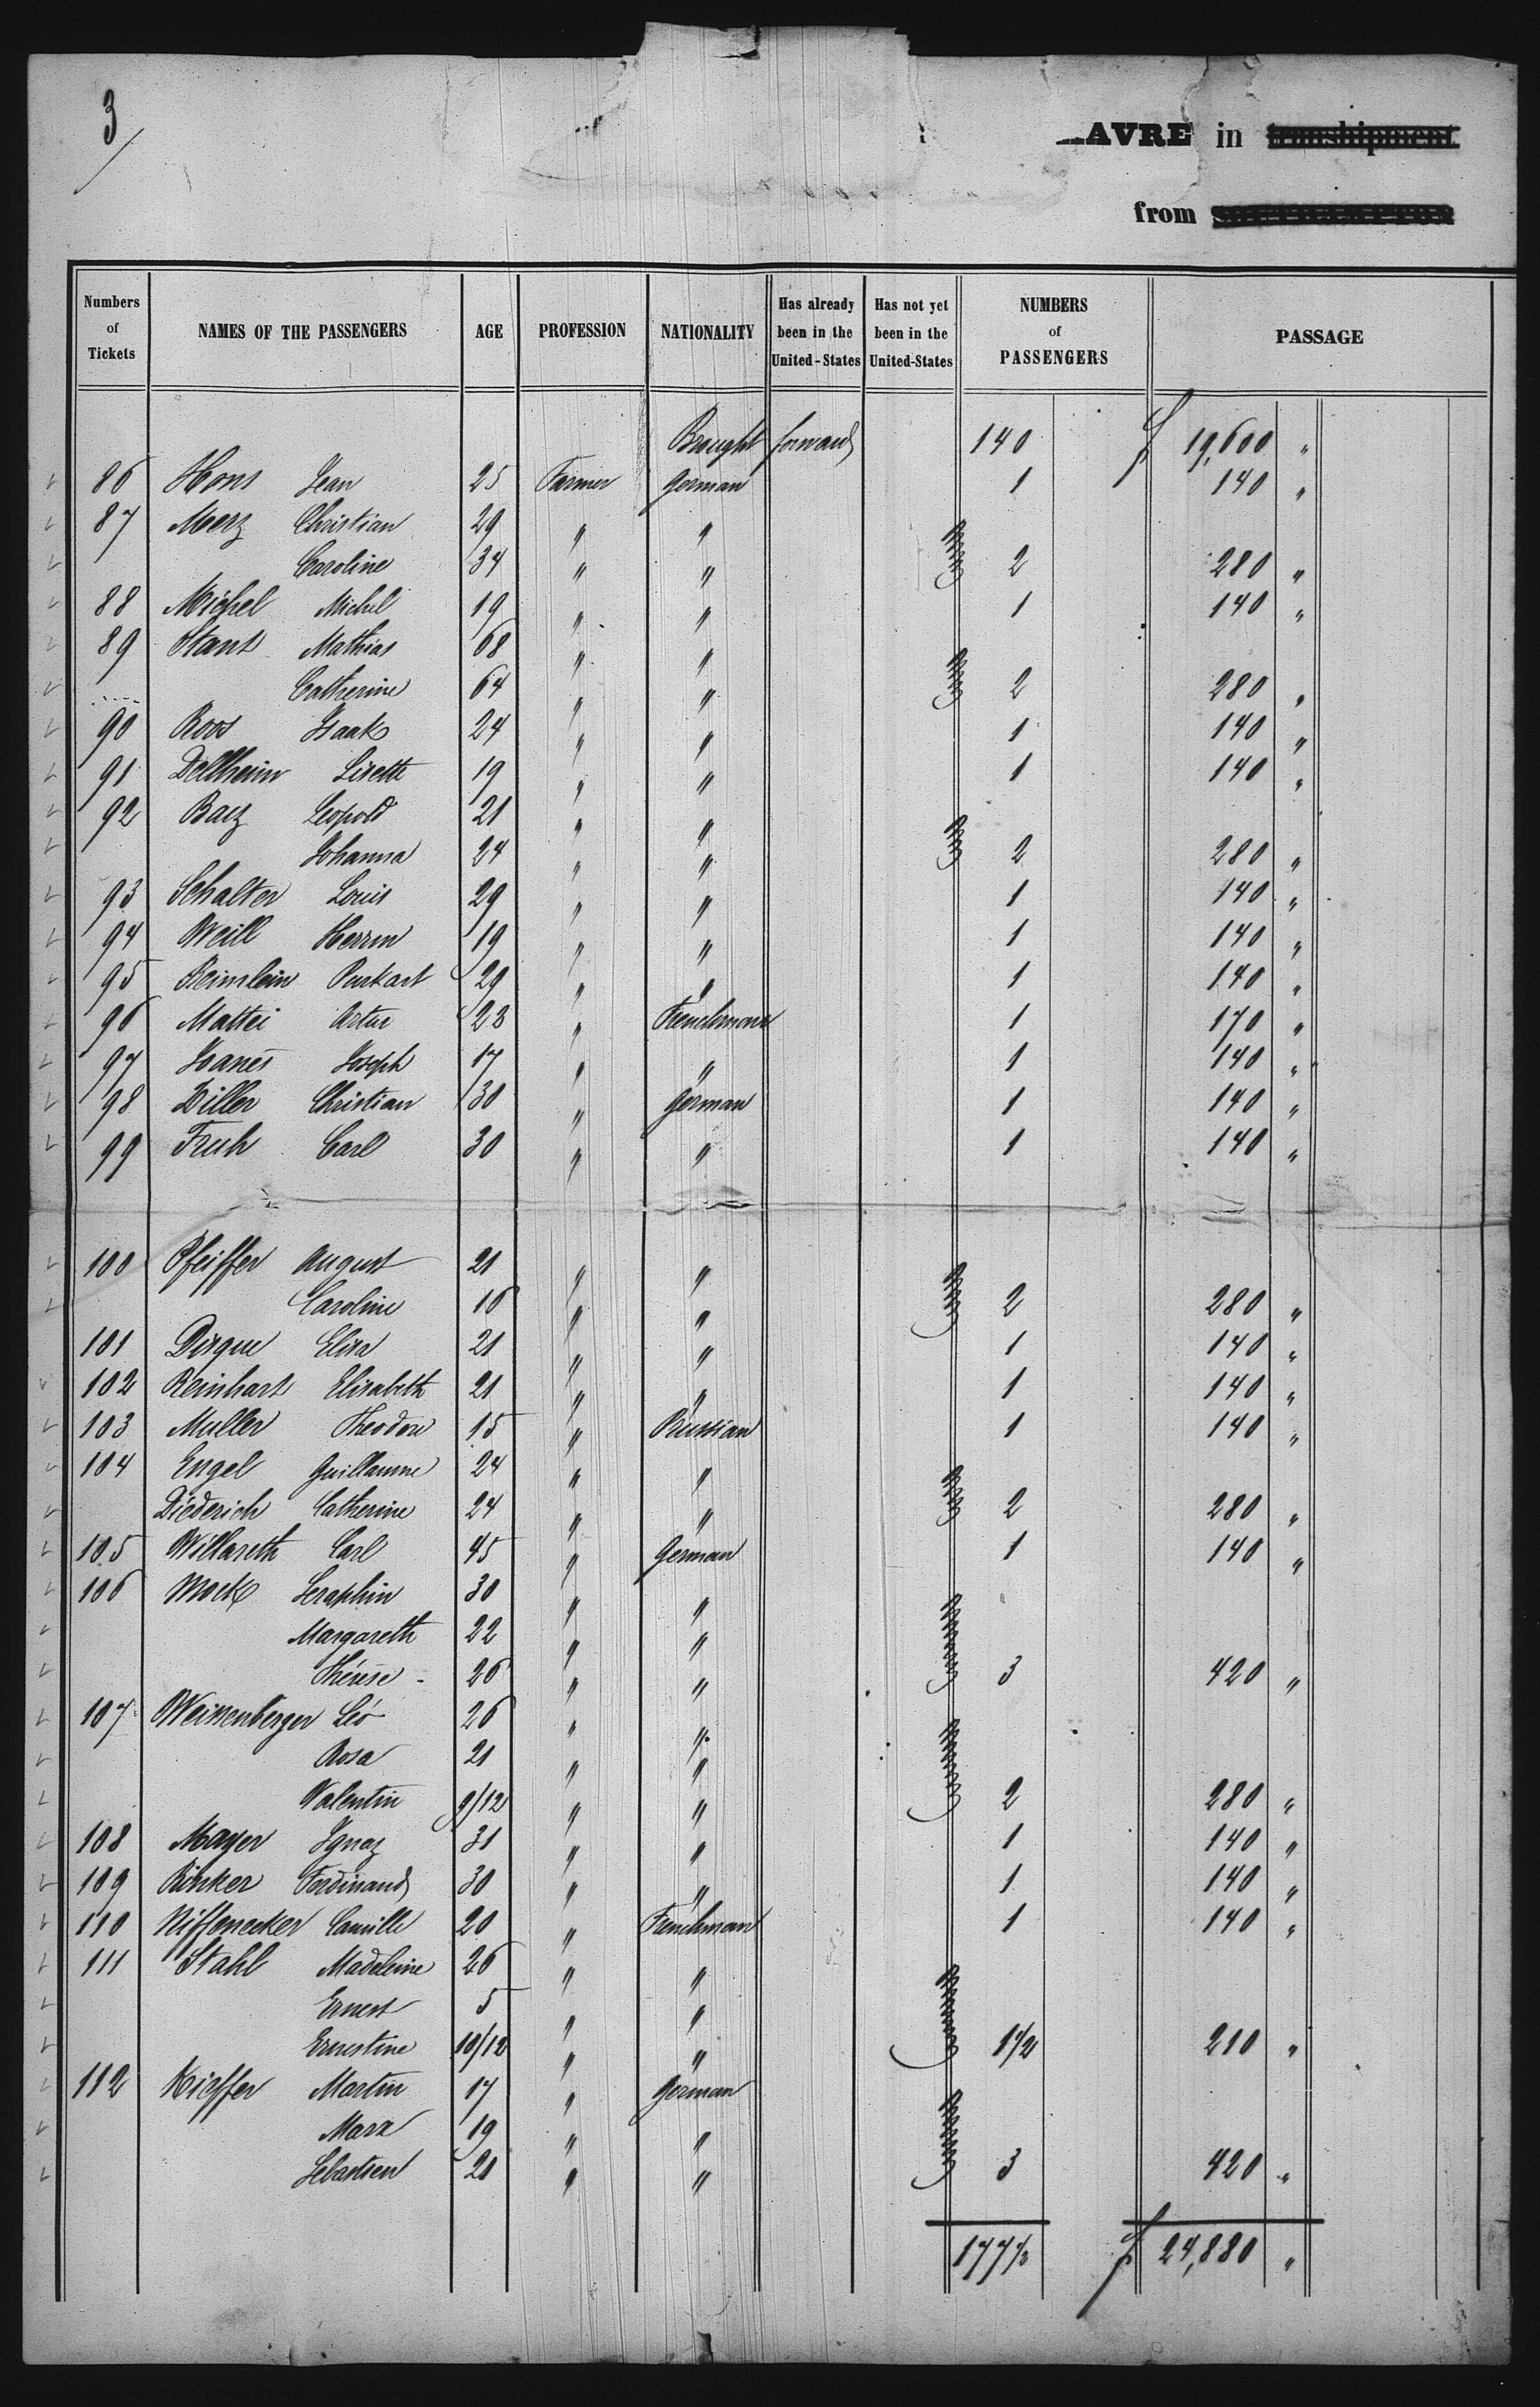 3
AVRE in transhipment
from
Numbers of Tickets NAMES OF THE PASSENGERS AGE PROFESSION NATIONALITY Has already been in the United-States Has not yet been in the United-States NUMBERS of PASSENGERS PASSAGE
Brought forward 140 f 19,600 "
86 Hons Jean 25 Farmer German 1 140 "
87 Merz Christian 29 " "
Caroline 34 " " 2 280 "
88 Michel Michel 19 " " 1 140 "
89 Stant Mathias 68 " "
Catherine 64 " " 2 280 "
90 Roos Isaak 24 " " 1 140 "
91 Dellheim Lisette 19 " " 1 140 "
92 Baez Leopold 21 " "
Johanna 24 " " 2 280 "
93 Schalter Louis 29 " " 1 140 "
94 Weill Herrm 19 " " 1 140 "
95 Reimlein Purkart 29 " " 1 140 "
96 Mattei Artur 23 " Frenchman 1 170 "
97 Hanes Joseph 17 " " 1 140 "
98 Ziller Christian 30 " German 1 140 "
99 Fruh Carl 30 " " 1 140 "
100 Pfeiffer August 21 " "
Caroline 16 " " 2 280 "
101 Dirque Elisa 21 " " 1 140 "
102 Reinhart Elisabeth 21 " " 1 140 "
103 Muller Theodore 15 " Prussian 1 140 "
104 Engel Guillaume 24 " "
Diederich Catherine 24 " " 2 280 "
105 Willareth Carl 45 " German 1 140 "
106 Mock Seraphin 30 " "
Margareth 22 " "
Thérèse 26 " " 3 420 "
107 Weissenberger Léo 26 " "
Rosa 21 " "
Valentin 9/12 " " 2 280 "
108 Mayer Ignaz 31 " " 1 140 "
109 Rinker Ferdinand 30 " " 1 140 "
110 Niffenecker Camille 20 " Frenchman 1 140 "
111 Stahl Madeleine 26 " "
Ernest 5 " "
Ernestine 10/12 " " 1 1/2 210 "
112 Kieffer Martin 17 " German
Marx 19 " "
Sebastien 21 " " 3 420 "
177 1/2 f 24,880 "